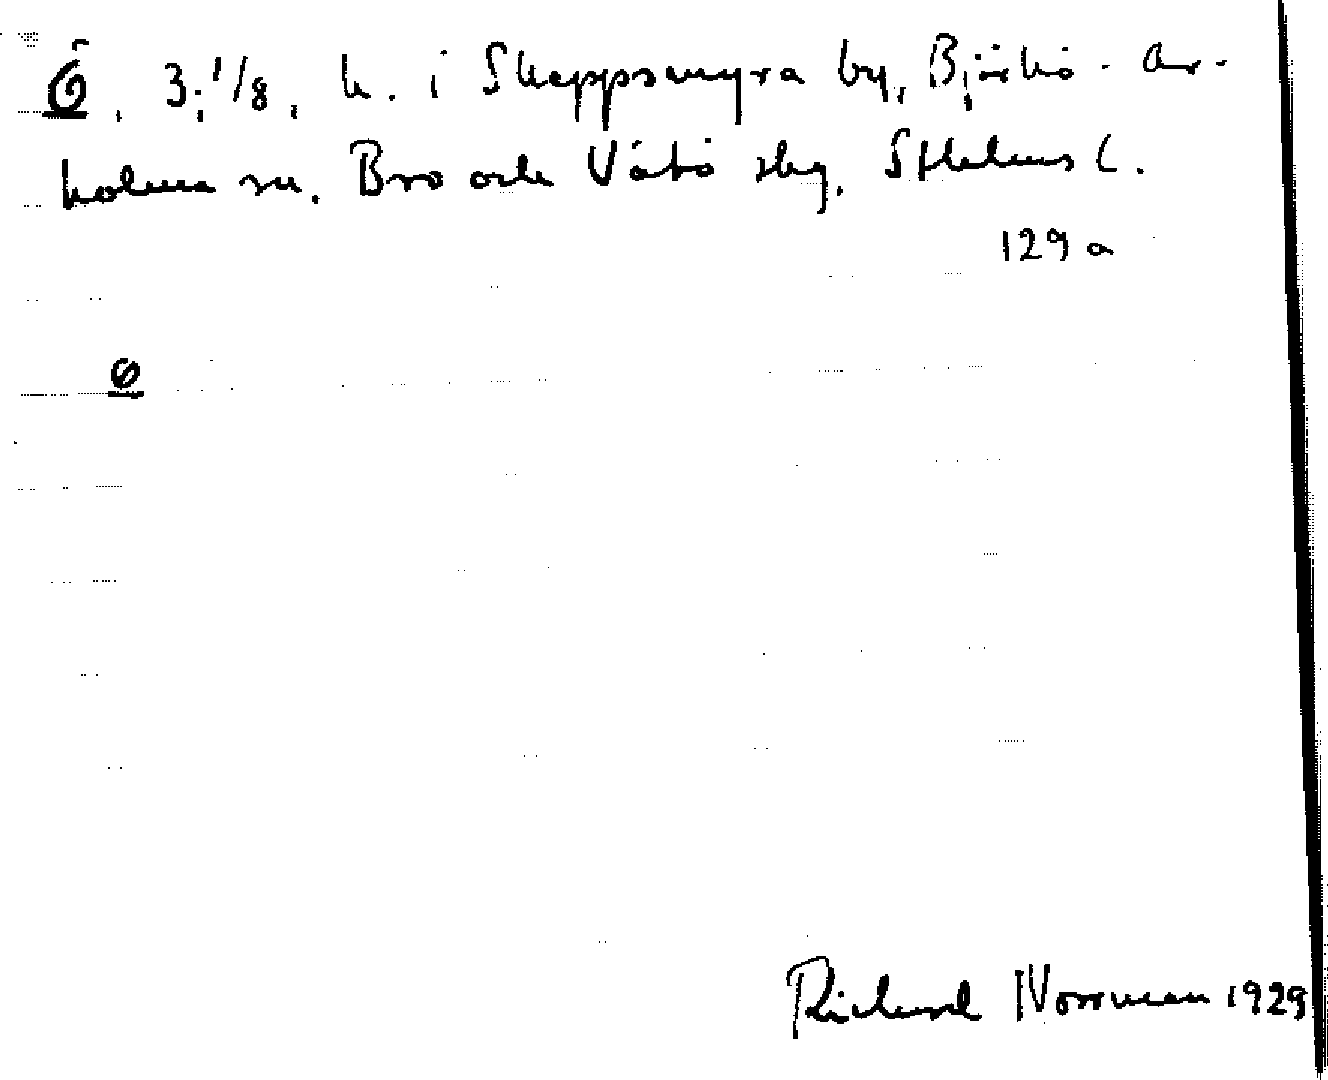 Ö, 3; 1/8, h. i Skeppsmyra by, Björkö-Ar-
holma sn. Bro och Vätö skg. Sthlms l.
129 a
ö
Richard Norrman 1929